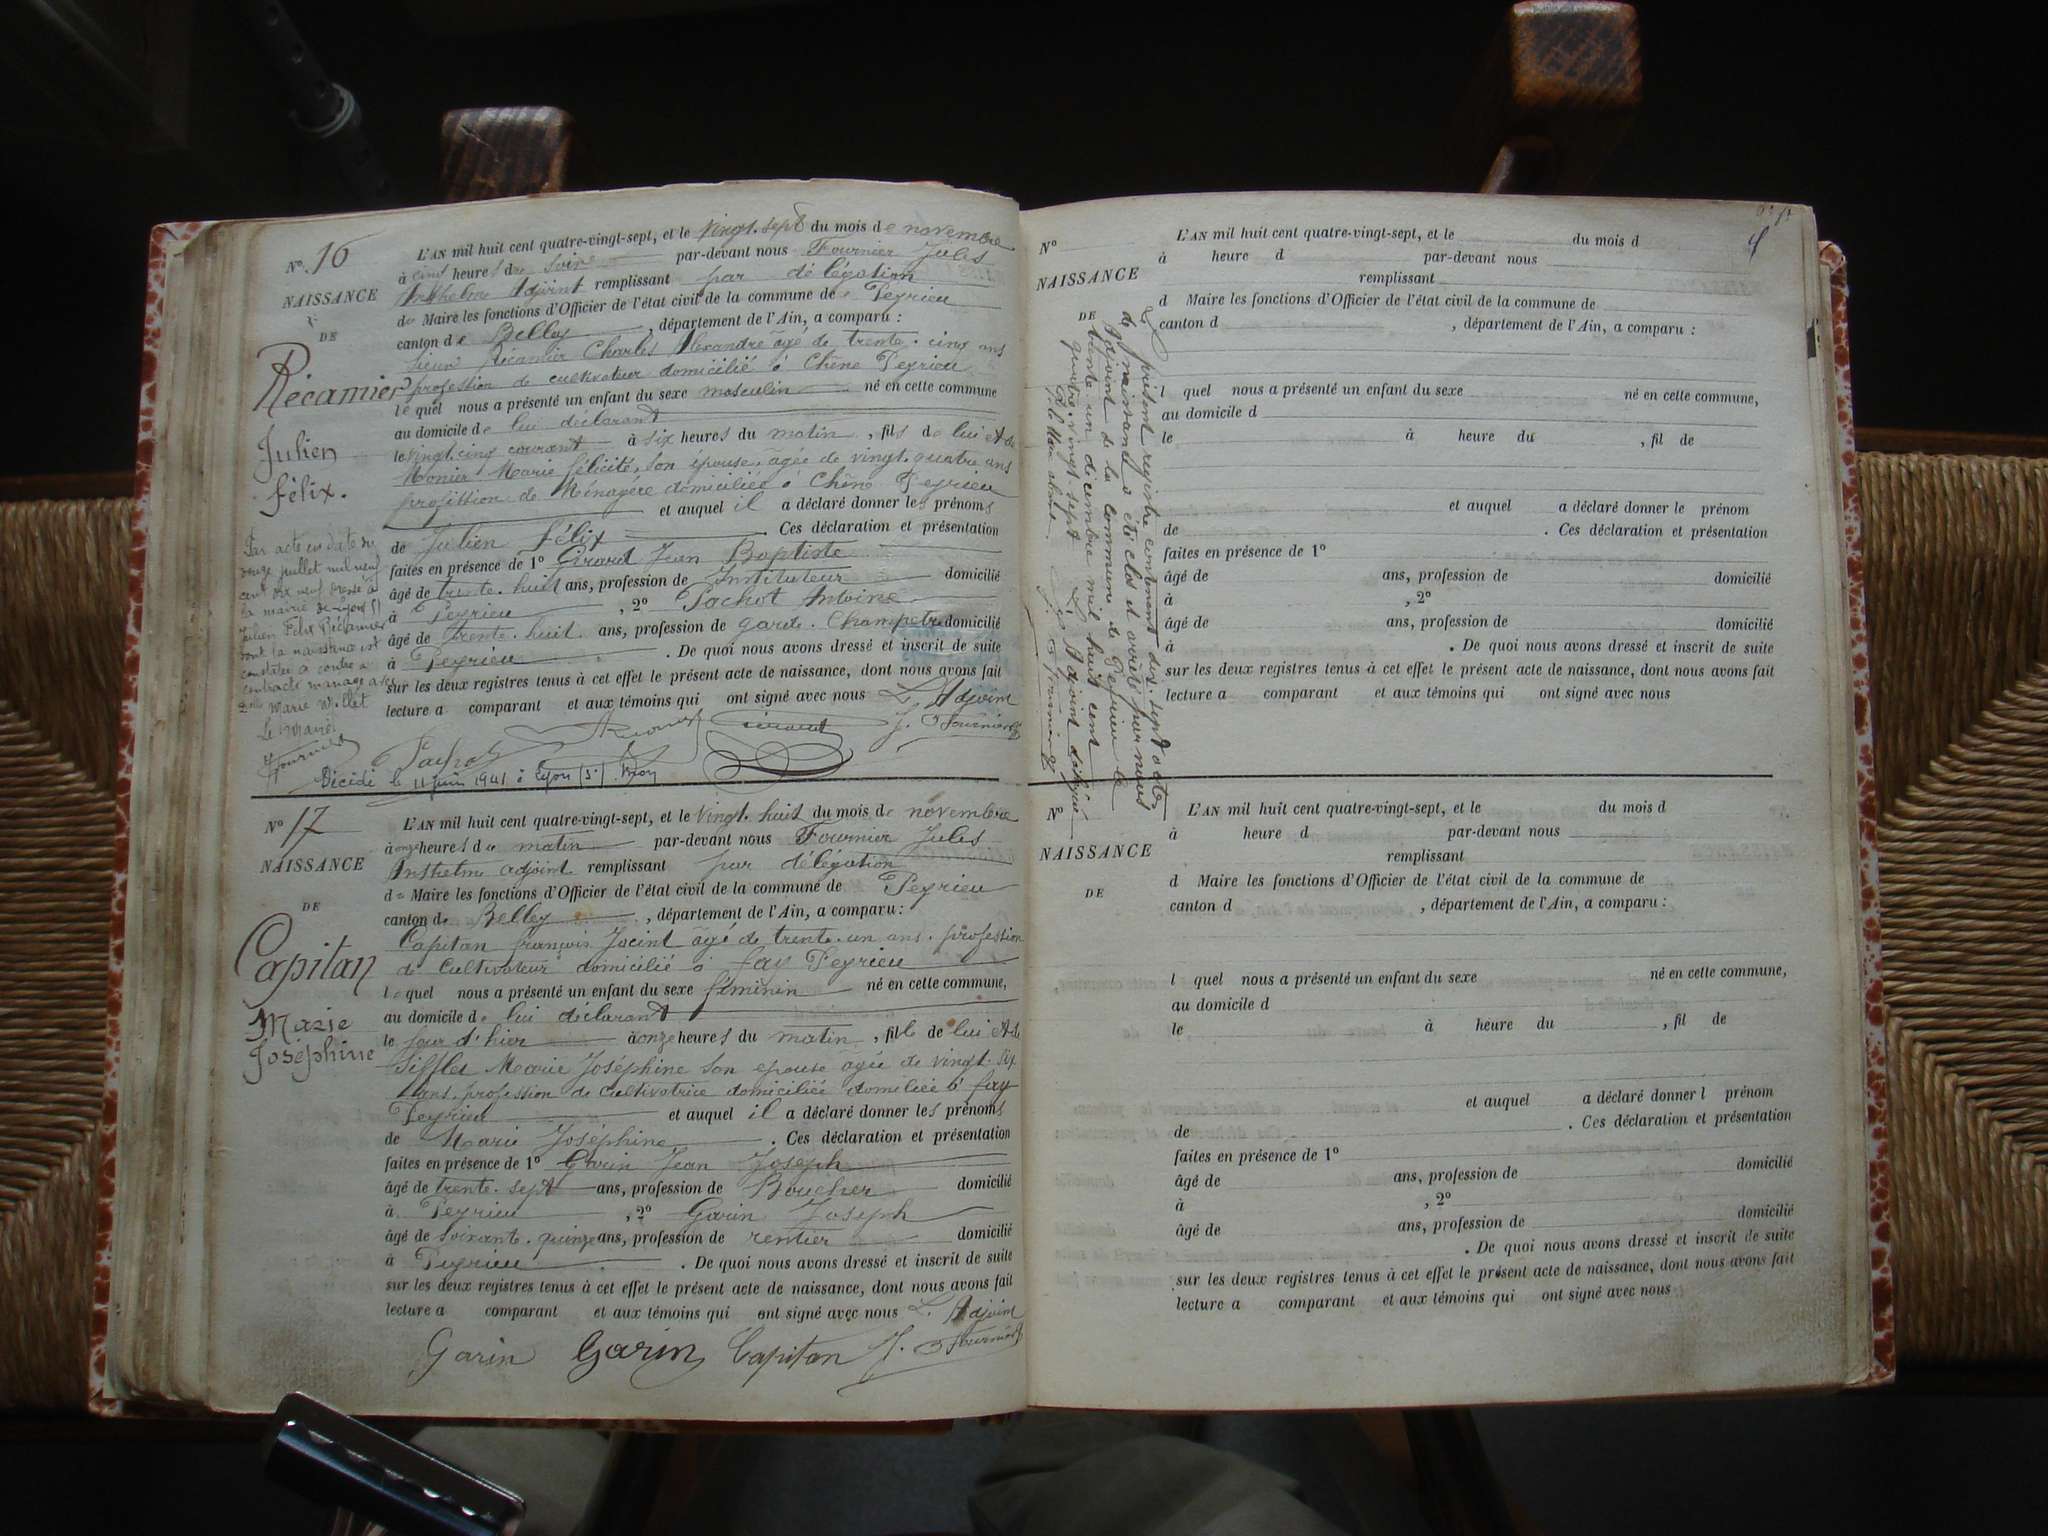 N° 16
NAISSANCE
DE
Récamier
Julien
félix.
L'AN mil huit cent quatre-vingt-sept, et le vingt-sept du mois de novembre
à cinq heures du soir par-devant nous Fournier Jules
Anthelme Adjoint remplissant par délégation
de Maire les fonctions d'Officier de l'état civil de la commune de Peyrieu
canton de Belley, département de l'Ain, a comparu :
Sieur Récamier Charles Alexandre âgé de trente-cinq ans
profession de cultivateur domicilié à Chêne Peyrieu
le quel nous a présenté un enfant du sexe masculin né en cette commune
au domicile de lui déclarant
le vingt-cinq courant à six heures du matin, fils de lui et de
Monier Marie félicité, son épouse, âgée de vingt-quatre ans
profession de Ménagère domiciliée à Chêne Peyrieu
et auquel il a déclaré donner les prénoms
de Julien félix. Ces déclaration et présentation
faites en présence de 1° Girard Jean Baptiste
âgé de trente-huit ans, profession de Instituteur domicilié
à Peyrieu, 2° Pachot Antoine
âgé de trente-huit ans, profession de garde-Champêtre domicilié
à Peyrieu. De quoi nous avons dressé et inscrit de suite
sur les deux registres tenus à cet effet le présent acte de naissance, dont nous avons fait
lecture a comparant et aux témoins qui ont signé avec nous L'Adjoint
Par acte en date du
juillet mil neuf
cent dix neuf dressé à
la mairie de Lyon
Julien Felix Récamier
dont la naissance est
constatée ci contre a
contracté mariage avec
Marie
Le Maire
Fournier
Pachot Girard J. Fournier
Décédé le 11 juin 1941 à Lyon (5e).
N° 17
NAISSANCE
DE
Capitan
Marie
Joséphine
L'AN mil huit cent quatre-vingt-sept, et le vingt-huit du mois de novembre
à onze heures du matin par-devant nous Fournier Jules
Anthelme adjoint remplissant par délégation
de Maire les fonctions d'Officier de l'état civil de la commune de Peyrieu
canton de Belley, département de l'Ain, a comparu :
Capitan françois Jacint âgé de trente-un ans, profession
de Cultivateur domicilié à fay Peyrieu
le quel nous a présenté un enfant du sexe féminin né en cette commune,
au domicile de lui déclarant
le jour d'hier à onze heures du matin, fille de lui et de
Sifflet Marie Joséphine son épouse agée de vingt-six
ans, profession de cultivatrice domiciliée domiliée à fay
Peyrieu et auquel il a déclaré donner les prénoms
de Marie Joséphine. Ces déclaration et présentation
faites en présence de 1° Garin Jean Joseph
âgé de trente-sept ans, profession de Boucher domicilié
à Peyrieu, 2° Garin Joseph
âgé de soixante-quinze ans, profession de rentier domicilié
à Peyrieu. De quoi nous avons dressé et inscrit de suite
sur les deux registres tenus à cet effet le présent acte de naissance, dont nous avons fait
lecture a comparant et aux témoins qui ont signé avec nous L'Adjoint
Garin Garin Capitan J. Fournier
N°
NAISSANCE
DE
L'AN mil huit cent quatre-vingt-sept, et le du mois d
à heure d par-devant nous
remplissant
d Maire les fonctions d'Officier de l'état civil de la commune de
canton d , département de l'Ain, a comparu :
l quel nous a présenté un enfant du sexe né en cette commune,
au domicile d
le à heure du , fil de
et auquel a déclaré donner le prénom
de . Ces déclaration et présentation
faites en présence de 1°
âgé de ans, profession de domicilié
à , 2°
âgé de ans, profession de domicilié
à . De quoi nous avons dressé et inscrit de suite
sur les deux registres tenus à cet effet le présent acte de naissance, dont nous avons fait
lecture a comparant et aux témoins qui ont signé avec nous
Le présent registre contenant dix-sept actes
de naissance a été clos et arrêté par nous
Adjoint de la commune de Peyrieu le
trente un décembre mil huit cent
quatre-vingt-sept L'Adjoint délégué
J. Fournier
N°
NAISSANCE
DE
L'AN mil huit cent quatre-vingt-sept, et le du mois d
à heure d par-devant nous
remplissant
d Maire les fonctions d'Officier de l'état civil de la commune de
canton d , département de l'Ain, a comparu :
l quel nous a présenté un enfant du sexe né en cette commune,
au domicile d
le à heure du , fil de
et auquel a déclaré donner l prénom
de . Ces déclaration et présentation
faites en présence de 1°
âgé de ans, profession de domicilié
à , 2°
âgé de ans, profession de domicilié
à . De quoi nous avons dressé et inscrit de suite
sur les deux registres tenus à cet effet le présent acte de naissance, dont nous avons fait
lecture a comparant et aux témoins qui ont signé avec nous